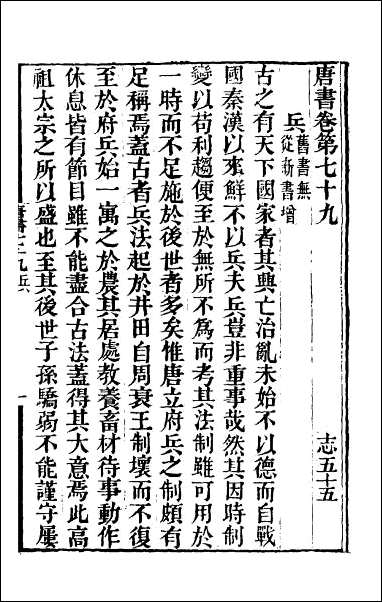 唐書卷第七十九 志五十五
兵 舊書無
從新書增
古之有天下國家者其興亡治亂未始不以德而自戰
國秦漢以來鮮不以兵夫兵豈非重事哉然其因時制
變以苟利趨便至於無所不為而考其法制雖可用於
一時而不足施於後世者多矣惟唐立府兵之制頗有
足稱焉蓋古者兵法起於井田自周衰王制壞而不復
至於府兵始一寓之於農其居處教養畜材待事動作
休息皆有節目雖不能盡合古法蓋得其大意焉此高
祖太宗之所以盛也至其後世子孫驕弱不能謹守屢
唐書七十九兵 一